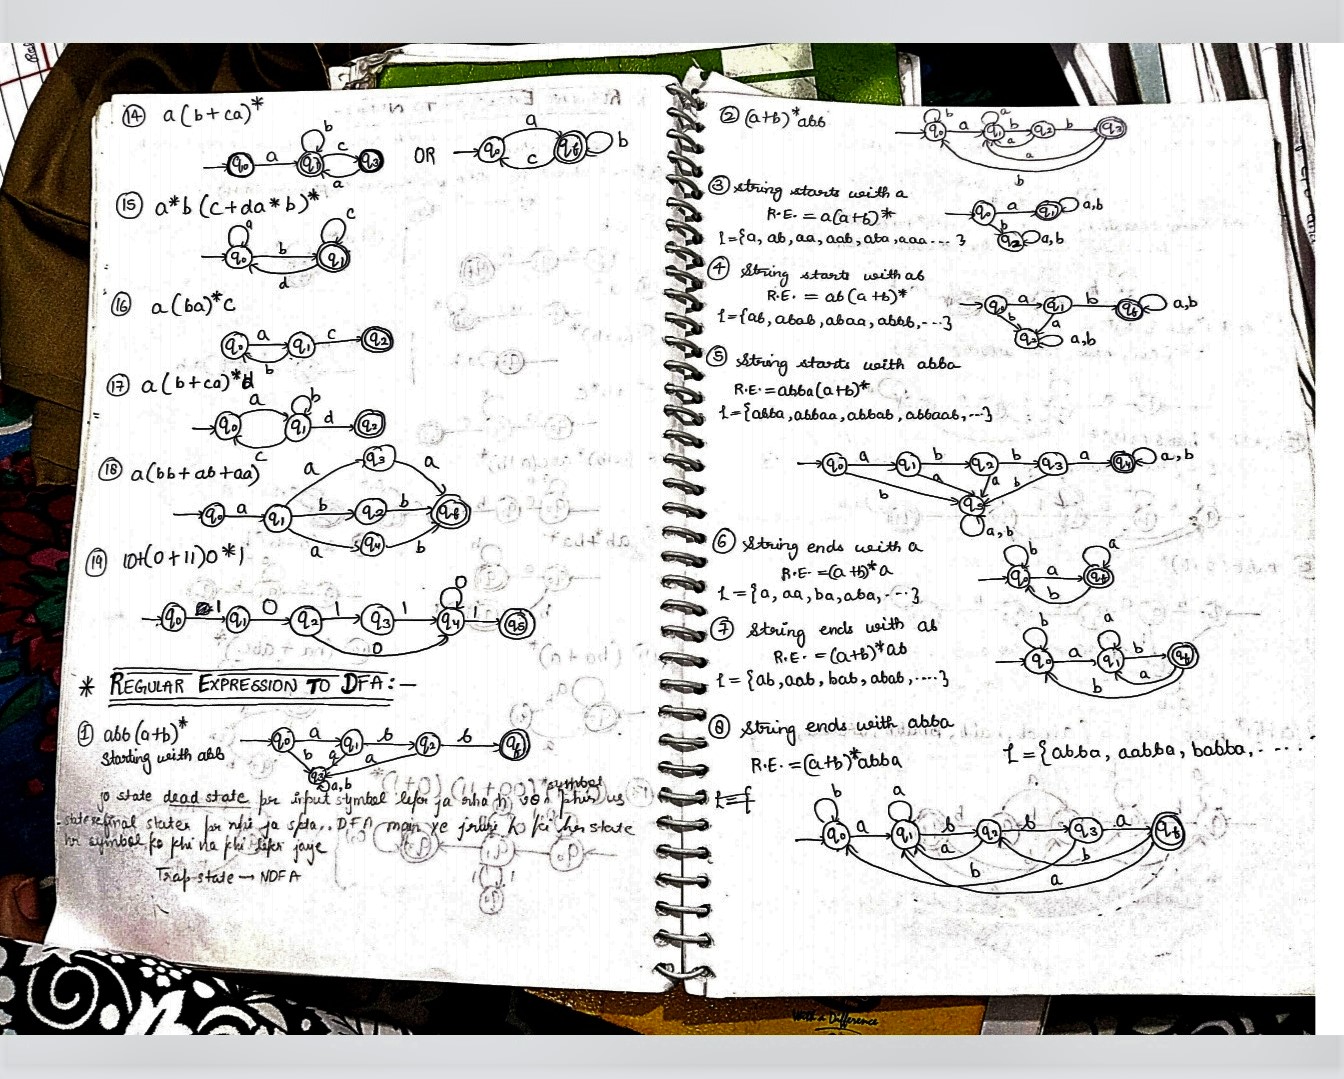 ⑭ a(b+ca)*
q₀ a q₁ b c a q₃ OR q₀ a c qf b
⑮ a*b(c+da*b)*
q₀ a b d q₁ c
⑯ a(ba)*c
q₀ a b q₁ c q₂
⑰ a(b+ca)*d
q₀ a c q₁ b d q₂
⑱ a(bb+ab+aa)
q₀ a q₁ a q₃ a b q₂ b a q₄ b qf
⑲ 10+(0+11)0*1
q₀ 1 q₁ 0 q₂ 1 q₃ 1 q₄ 0 1 q₅ 0
* REGULAR EXPRESSION TO DFA:-
① abb(a+b)*
Starting with abb
q₀ a q₁ b q₂ b qf b a a q₃ a,b
jo state dead state pr input symbol lekr ja rha h, phir us
state se final state pr nhi ja skta.. DFA main ye jruri h ki her state
hr symbol ko khi na khi lekr jaye
Trap state → NDFA
② (a+b)*abb
q₀ b a q₁ a b q₂ b q₃ a a b
③ String starts with a
R.E. = a(a+b)*
L={a, ab, aa, aab, aba, aaa....}
q₀ a q₁ a,b b q₂ a,b
④ String starts with ab
R.E. = ab(a+b)*
L={ab, abab, abaa, abbb,...}
q₀ a q₁ b qf a,b b a q₂ a,b
⑤ String starts with abba
R.E.=abba(a+b)*
L={abba, abbaa, abbab, abbaab,...}
q₀ a q₁ b q₂ b q₃ a q₄ a,b
b a a b q₅
a,b
⑥ String ends with a
R.E. =(a+b)*a
L={a, aa, ba, aba,....}
q₀ b a qf a b
⑦ String ends with ab
R.E. =(a+b)*ab
L={ab, aab, bab, abab,.....}
q₀ b a q₁ a b qf a b
⑧ String ends with abba
R.E. =(a+b)*abba
L={abba, aabba, babba,.....
q₀ b a q₁ a b q₂ b q₃ a qf a b b a
With a Difference